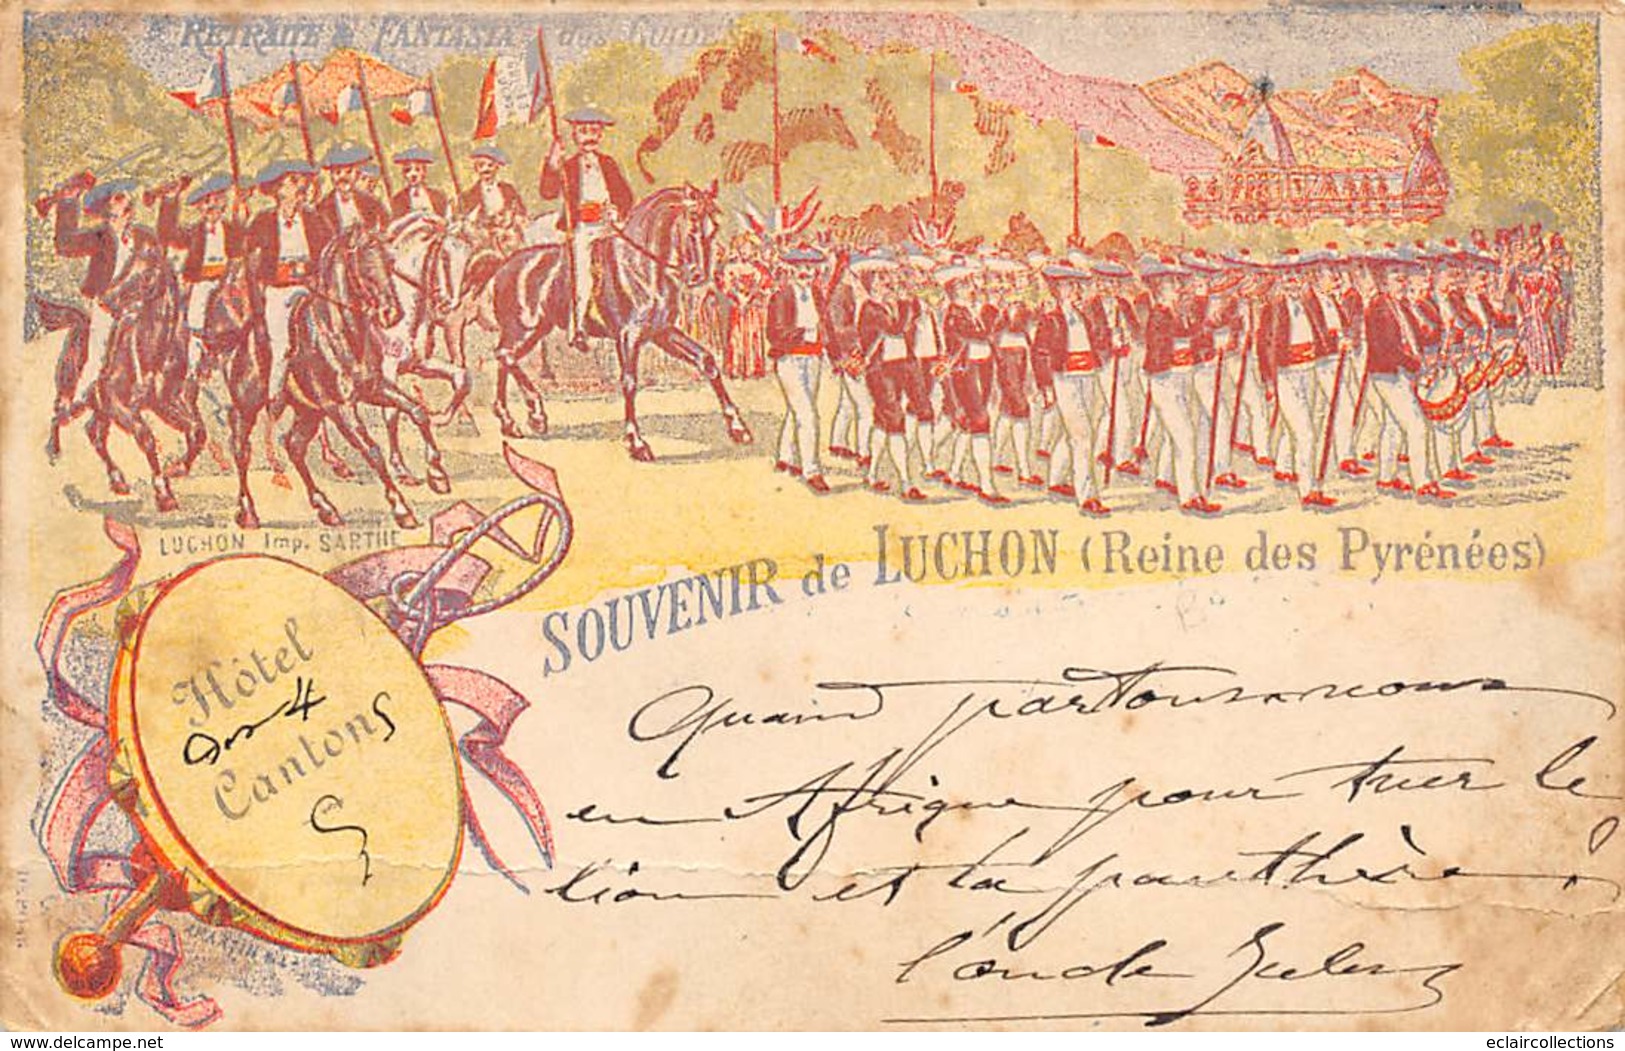 RETRAITE & FANTASIA des GUIDES
LUCHON Imp. SARTHE
SOUVENIR de LUCHON (Reine des Pyrénées)
Hôtel
des 4
Cantons
Quand partons-nous
en Afrique pour tuer le
lion et la panthère,
l'oncle Jules
www.delcampe.net
eclaircollections